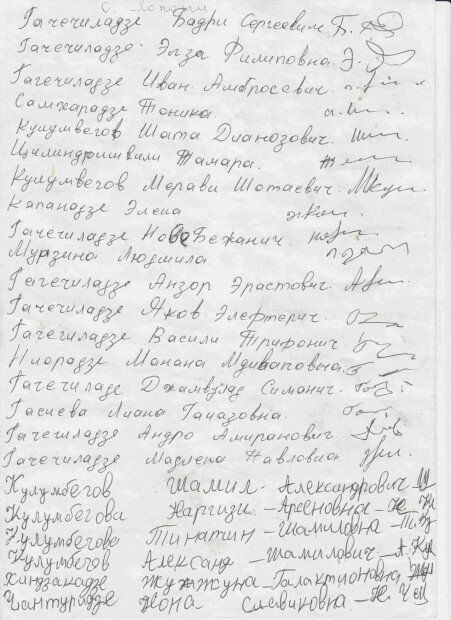 с. Лопани
Гачечиладзе Бадри Сергеевич. Б.
Гачечиладзе. Элза Филиповна. Э.
Гагечиладзе Иван Амбросевич.
Самхарадзе Тоника.
Кулумвегов Шата Дианозович.
Цилиндришвили Тамара.
Кулумвегов Мерави Шотаевич.
Капанадзе Элена
Гачечиладзе Бежанич.
Мурзина Людмила.
Гегечиладзе Анзор Эрастович.
Гачечиладзе Яков Элефтерич.
Гачегиладзе Васили Трифонич.
Ниорадзе Манана Мдивановна.
Гачечиладе Джамвулад Симонич.
Гасиева Лиана Гамазовна.
Гачегиладзе Андро Амиранович.
Гачечиладзе Мадлена Павловна
Кулумбегов Шамил. Александрович
Кулумбегова Наргизи - Арсеновна - Н.
Кулумбегова Тинатин - Шамиловна -
Кулумбегов Александ - Шамилович - А.
Хиндзакадзе Жужжуна - Галактионовна
Чантуридзе Нона Славиковна - Н.